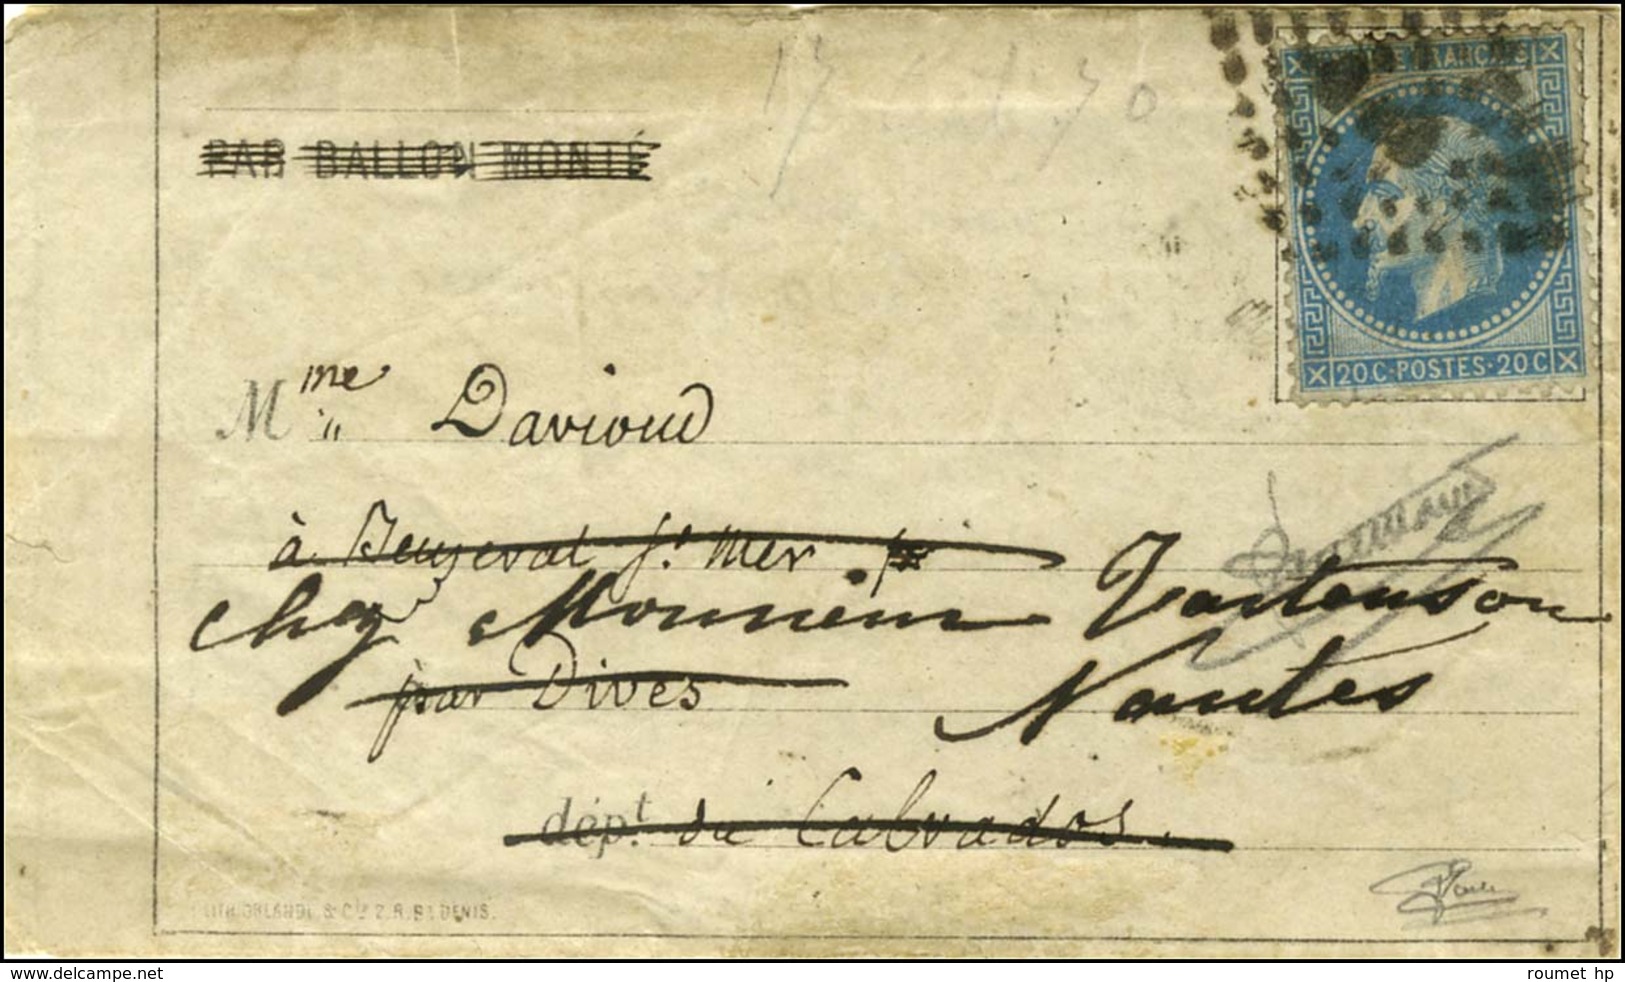 PAR BALLON MONTÉ
EMPIRE FRANÇAIS
20 C - POSTES - 20 C
Mme Davioud
à Beuzeval s/ Mer
chez Monsieur
par Dives
Nantes
dépt. du Calvados.
LITH. ORLANDI & Cie 2. R. St DENIS.
roumet hp